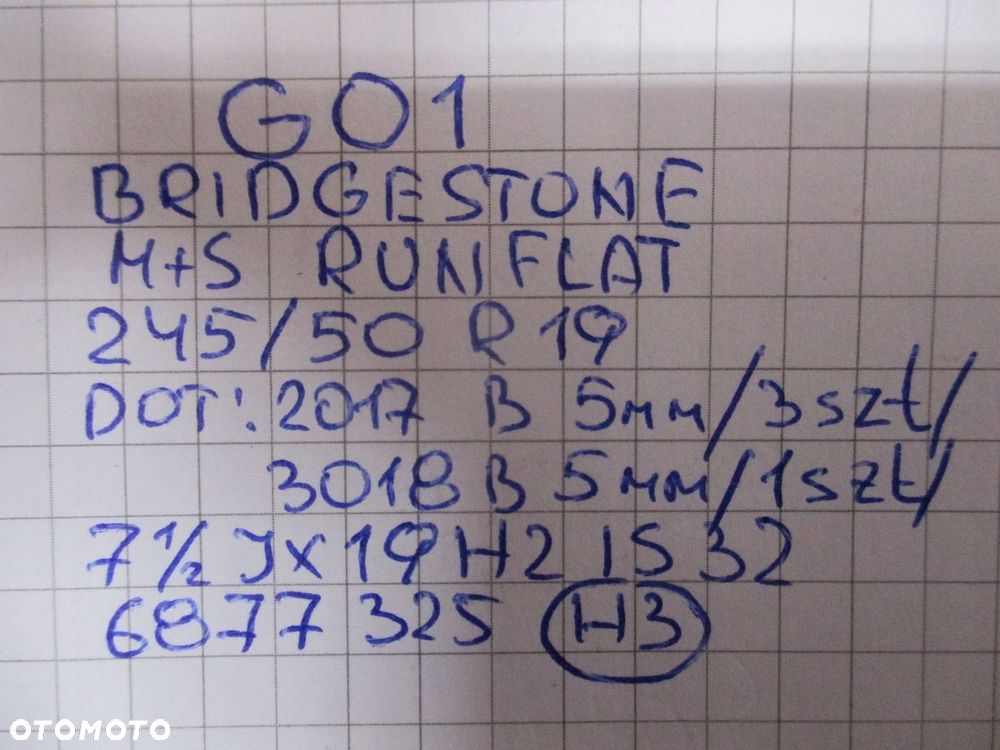 G01
BRIDGESTONE
M+S RUNFLAT
245/50 R 19
DOT: 2017 B 5mm/3szt/
3018 B 5mm/1szt/
7 1/2 JX19 H2 IS 32
6877 325 H3
OTOMOTO